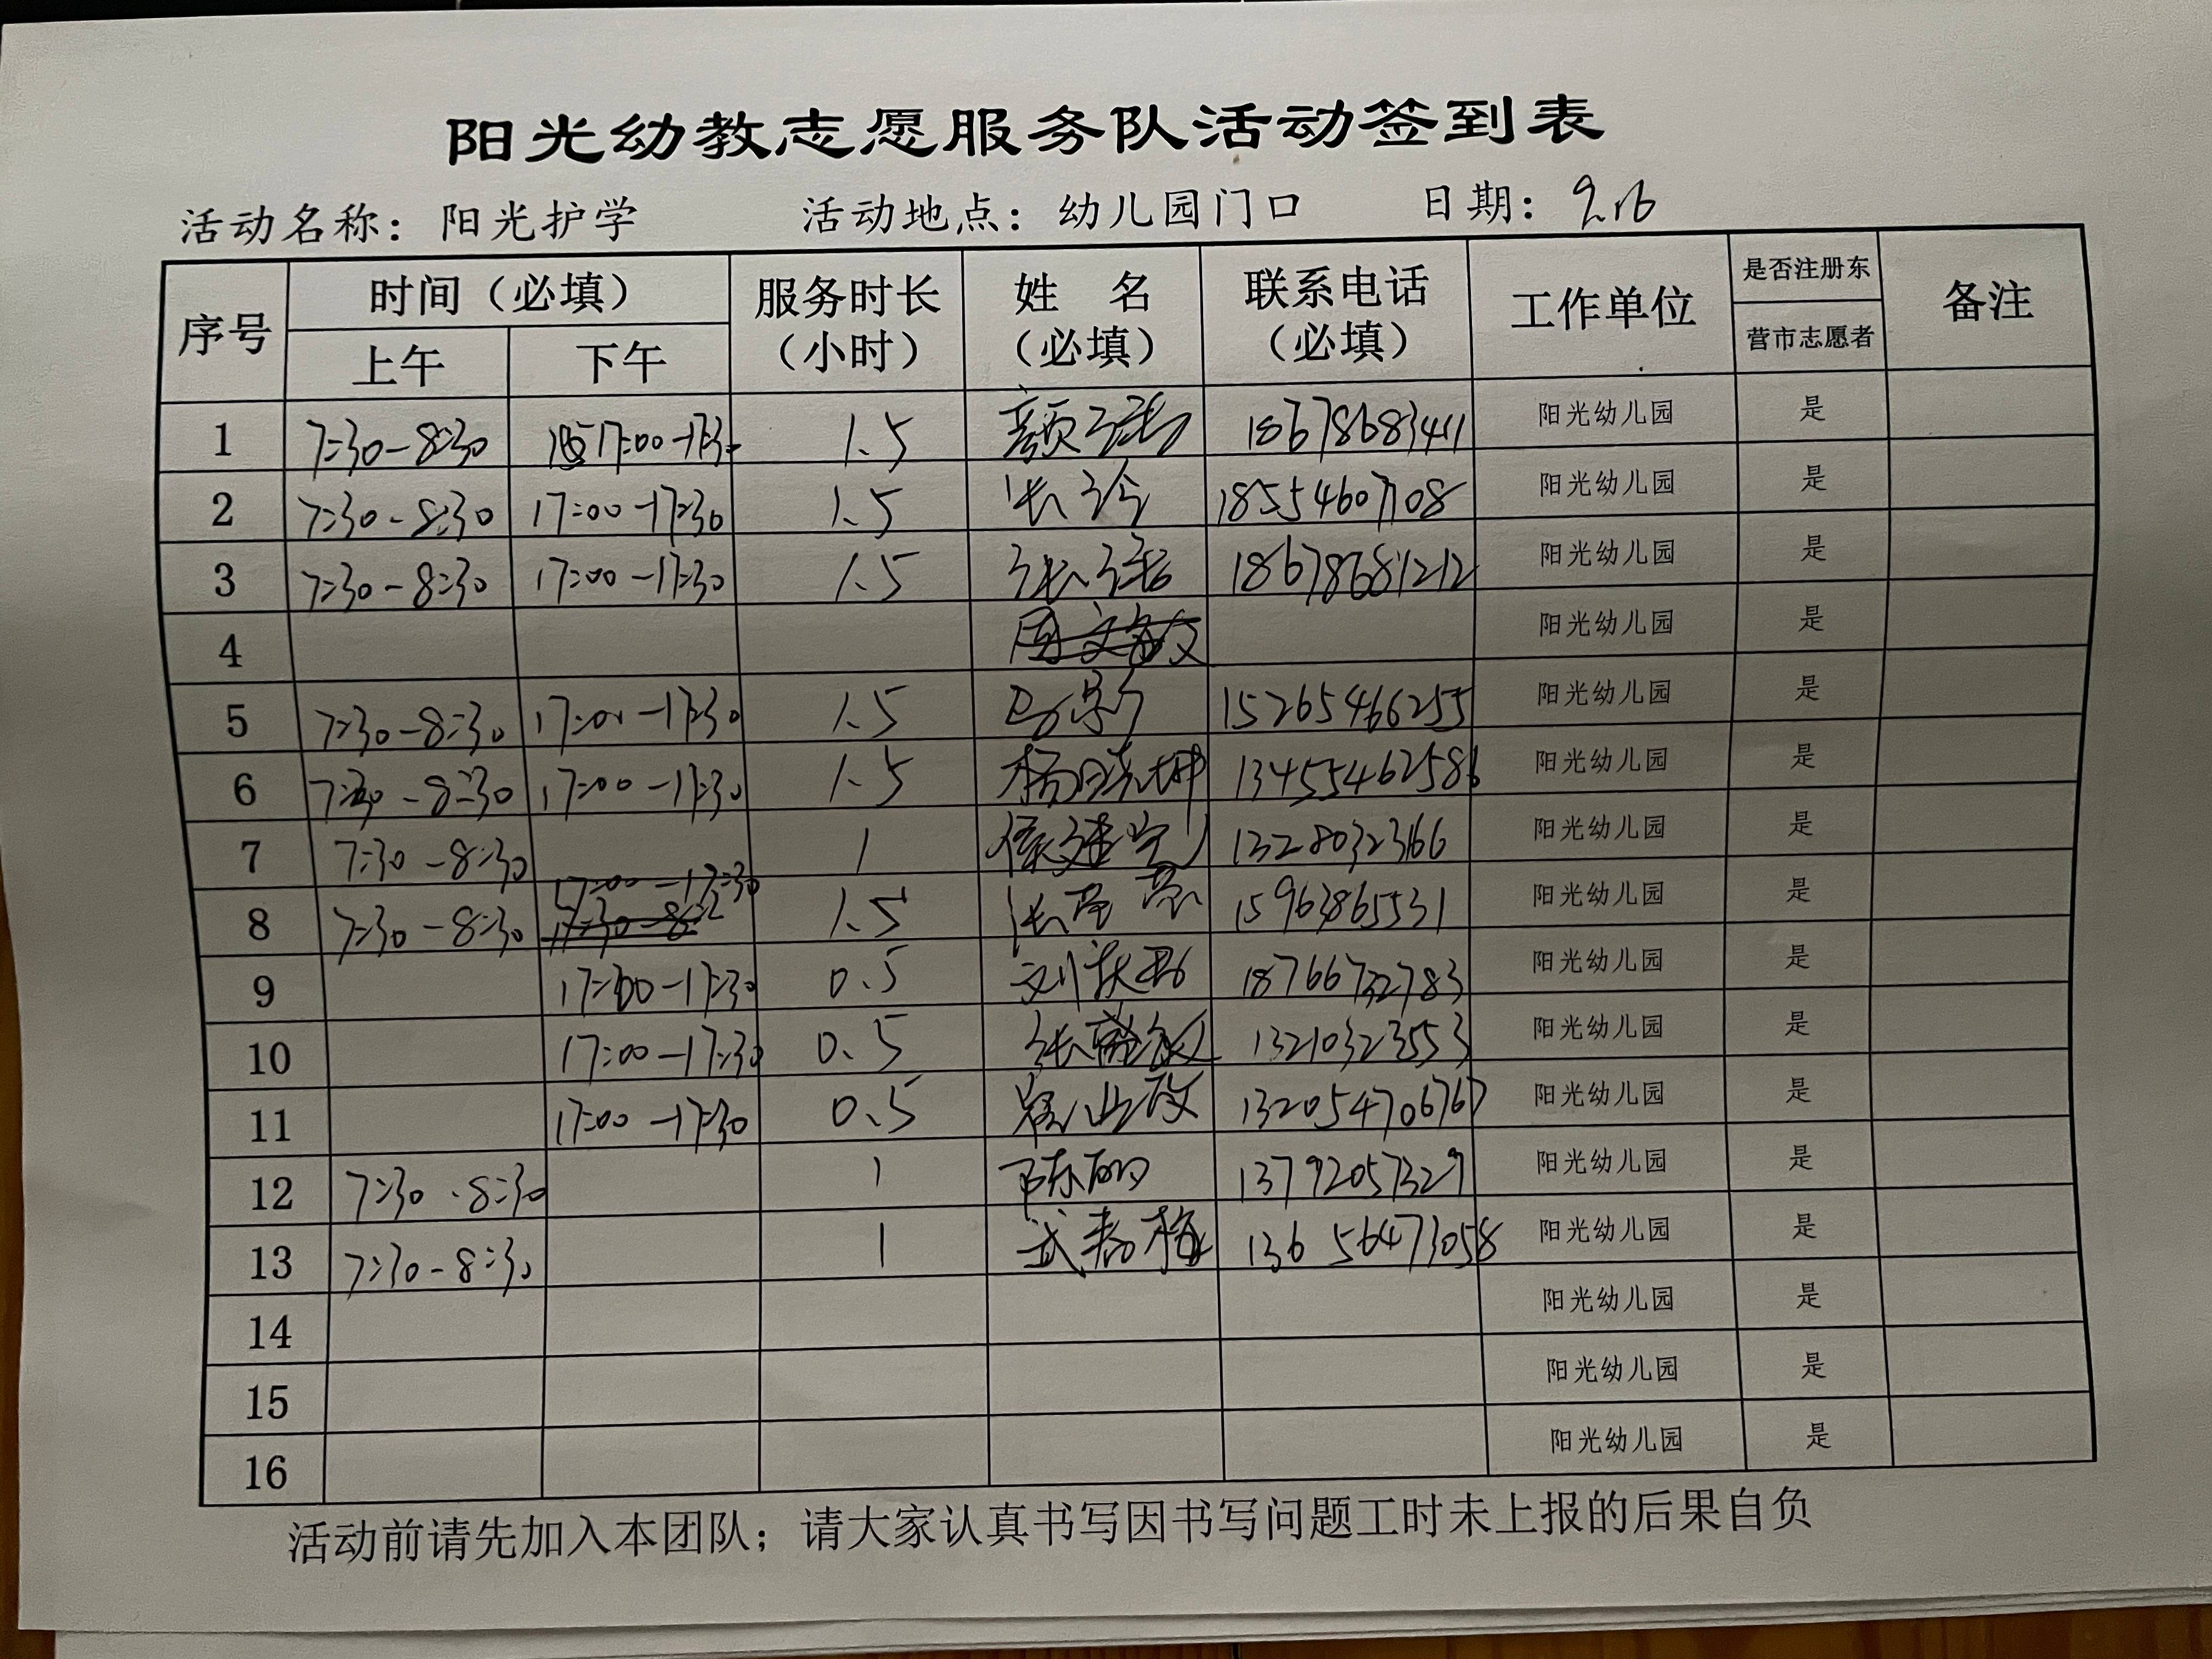 阳光幼教志愿服务队活动签到表
活动名称：阳光护学 活动地点：幼儿园门口 日期：9.16
序号 时间（必填） 服务时长（小时） 姓 名（必填） 联系电话（必填） 工作单位 是否注册东营市志愿者 备注
上午 下午
1 7:30-8:30 17:00-17:30 1.5 颜 18678683411 阳光幼儿园 是
2 7:30-8:30 17:00-17:30 1.5 张玲 18554607108 阳光幼儿园 是
3 7:30-8:30 17:00-17:30 1.5 张 18678681212 阳光幼儿园 是
4 阳光幼儿园 是
5 7:30-8:30 17:00-17:30 1.5 15265466255 阳光幼儿园 是
6 7:30-8:30 17:00-17:30 1.5 杨晓坤 13455462586 阳光幼儿园 是
7 7:30-8:30 1 13280323166 阳光幼儿园 是
8 7:30-8:30 17:00-17:30 1.5 张 15963865531 阳光幼儿园 是
9 17:00-17:30 0.5 刘 18766732783 阳光幼儿园 是
10 17:00-17:30 0.5 张 13210323553 阳光幼儿园 是
11 17:00-17:30 0.5 132054706767 阳光幼儿园 是
12 7:30-8:30 1 陈丽 13792057329 阳光幼儿园 是
13 7:30-8:30 1 武春梅 13656473058 阳光幼儿园 是
14 阳光幼儿园 是
15 阳光幼儿园 是
16 阳光幼儿园 是
活动前请先加入本团队；请大家认真书写因书写问题工时未上报的后果自负